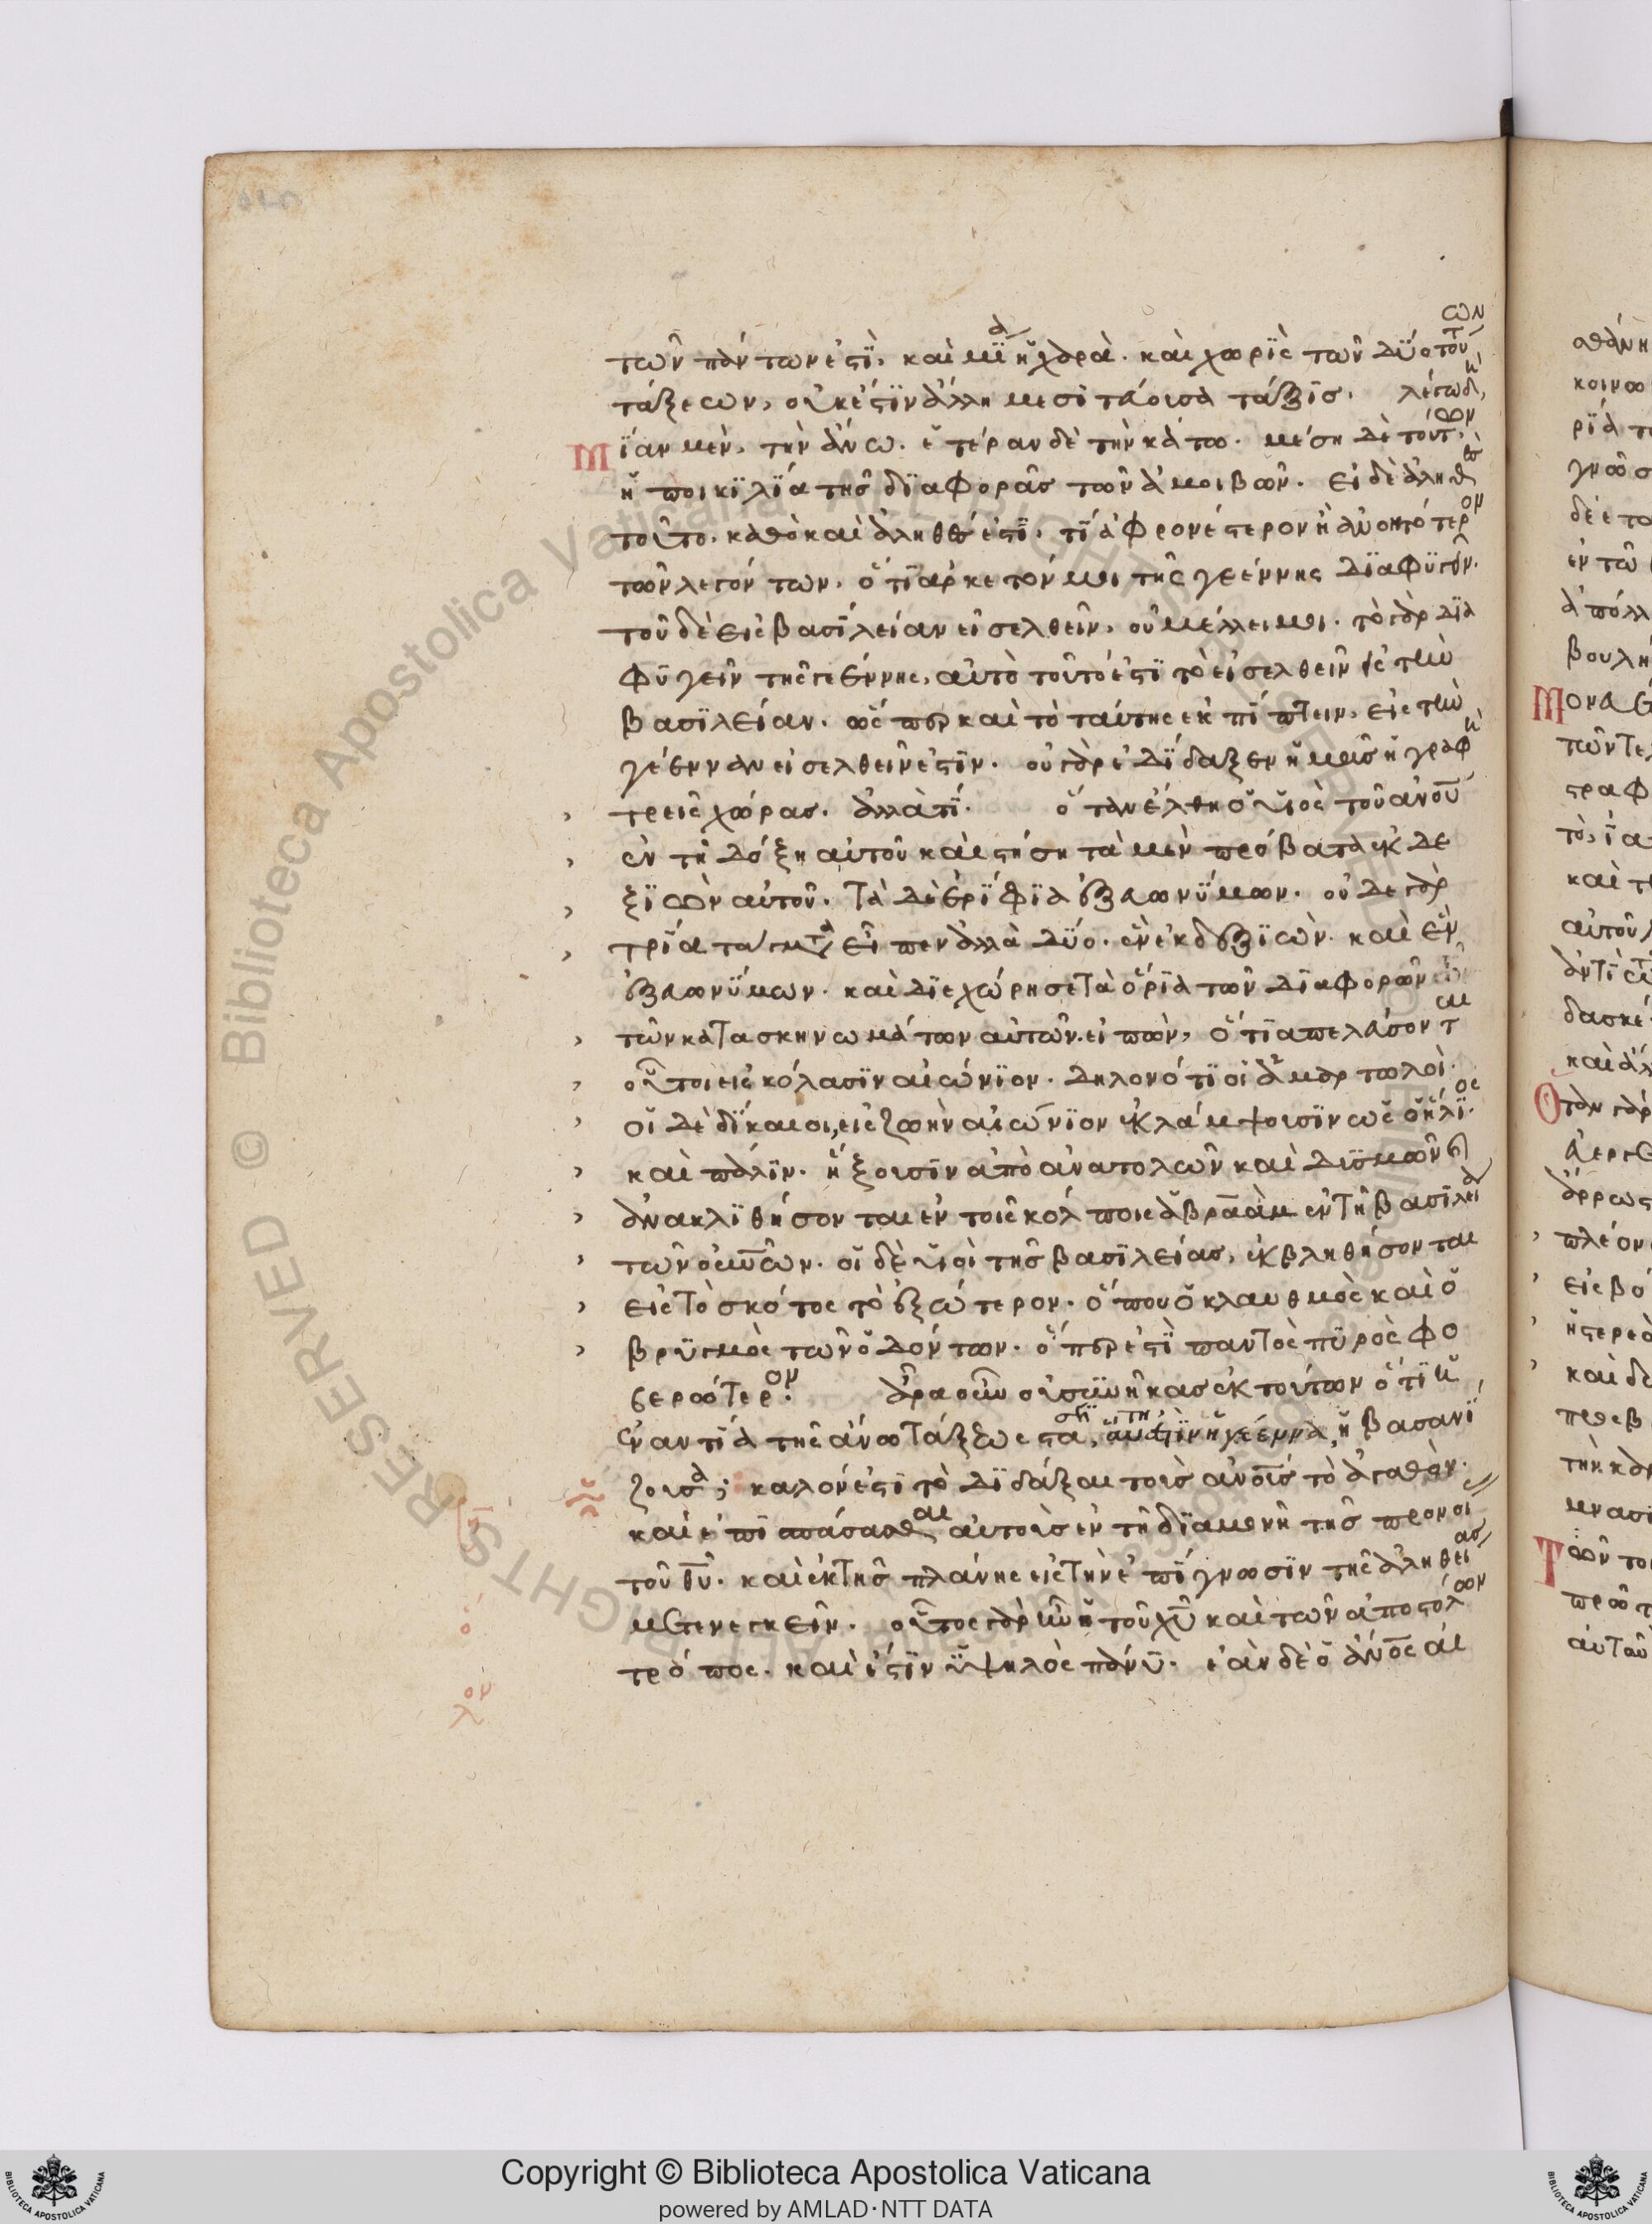 τῶν πάντων ἐστϊ, καὶ μϊα ἡ χαρὰ. καὶ χωρὶς τῶν δύο τούτων
τάξεων, οὐκέστϊν ἄλλη μεσιτεύουσα τάξις. λέγω δὴ,
Μίαν μὲν, τὴν ἄνω. ἑτέραν δὲ τὴν κάτω. μέση δὲ τούτων,
ἡ ποικιλΐα τῆς διαφορᾶς τῶν ἀμοιβῶν. εἰ δὲ ἀληθὲς
τοῦτο. καθὸ καὶ ἀληθές ἐστϊ. τί ἀφρονέστερον ἢ ἀνοητότερον
τῶν λεγόντων, ὅτι ἀρκετόν μοι τῆς γεέννης διαφυγεῖν.
τοῦ δὲ εἰς βασιλείαν εἰσελθεῖν, οὐ μέλει μοι. τὸ γὰρ δια
φυγεῖν τῆς γεέννης, αὐτὸ τοῦτό ἐστϊ τὸ εἰσελθεῖν εἰς τὴν
βασιλείαν. ὥσπερ καὶ τὸ ταύτης ἐκπίπτειν, εἰς τὴν
γέενναν εἰσελθεῖν ἐστϊν. οὐ γὰρ ἐδίδαξεν ἡμᾶς ἡ γραφὴ
τρεῖς χώρας. ἀλλὰ τί. ὅταν ἔλθη ὁ υἱὸς τοῦ ανου
ἐν τῆ δόξη αὐτοῦ καὶ στήση τὰ μὲν πρόβατα ἐκ δε
ξιῶν αὐτοῦ. τὰ δὲ ἐρίφια ἐξ εὐωνύμων. οὐδὲ γὰρ
τρία τάγματα εἶπεν ἀλλὰ δύο. ἓν ἐκ δεξιῶν. καὶ ἓν
ἐξ εὐωνύμων. καὶ διεχώρησε τὰ ὅρια τῶν διαφορῶν
τῶν κατασκηνωμάτων αὐτῶν. εἰπὼν, ὅτι ἀπελεύσονται
οὗτοι εἰς κόλασιν αἰώνιον. δηλονότι οἱ ἁμαρτωλοὶ.
οἱ δὲ δίκαιοι, εἰς ζωὴν αἰώνιον ἐκλάμψουσιν ὡς ὁ ἥλιος.
καὶ πάλιν. ἥξουσιν ἀπὸ ἀνατολῶν καὶ δυσμῶν καὶ
ἀνακλιθήσονται ἐν τοῖς κόλποις ἀβραὰμ ἐν τῆ βασιλεία
τῶν ουνῶν. οἱ δὲ υἱοὶ τῆς βασιλείας, ἐκβληθήσονται
εἰς τὸ σκότος τὸ ἐξώτερον. ὅπου ὁ κλαυθμὸς καὶ ὁ
βρυγμὸς τῶν ὀδόντων. ὅπερ ἐστὶ παντὸς πυρὸς φο
βερώτερον. ἆρα οὖν οὐ συνῆκας ἐκ τούτων ὅτι ἡ
ἐναντία τῆς ἄνω τάξεως στάσις, αὕτη ἐστὶν ἡ γέεννα, ἡ βασανί
ζουσα; καλόν ἐστι τὸ διδάξαι τοὺς ανους τὸ ἀγαθὸν.
καὶ ἐπισπάσασθαι αὐτοὺς ἐν τῆ διαμονῆ τῆς προνοίας
τοῦ θυ. καὶ ἐκ τῆς πλάνης εἰς τὴν ἐπίγνωσιν τῆς ἀληθείας
μετενεγκεῖν. οὗτος γὰρ ἦν τοῦ χυ καὶ τῶν ἀποστόλων
τρόπος. καὶ ἔστιν ὑψηλὸς πάνυ. ἐὰν δὲ ὁ ανος αἰ
Copyright © Biblioteca Apostolica Vaticana
powered by AMLAD·NTT DATA